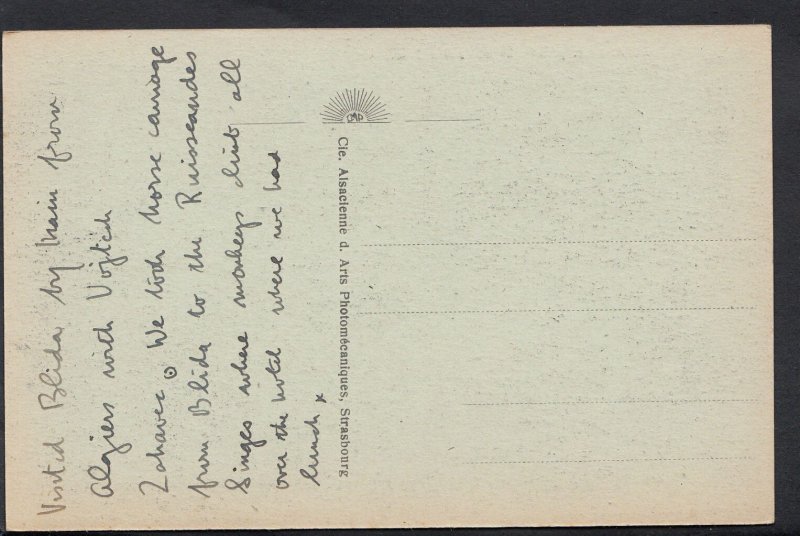 Visited Blida by train from
Algiers with Vojtech
Zahavec. We took horse carriage
from Blida to the Ruisseaudes
Singes where monkeys climb all
over the hotel where we had
lunch x
Cie. Alsacienne d. Arts Photomécaniques, Strasbourg